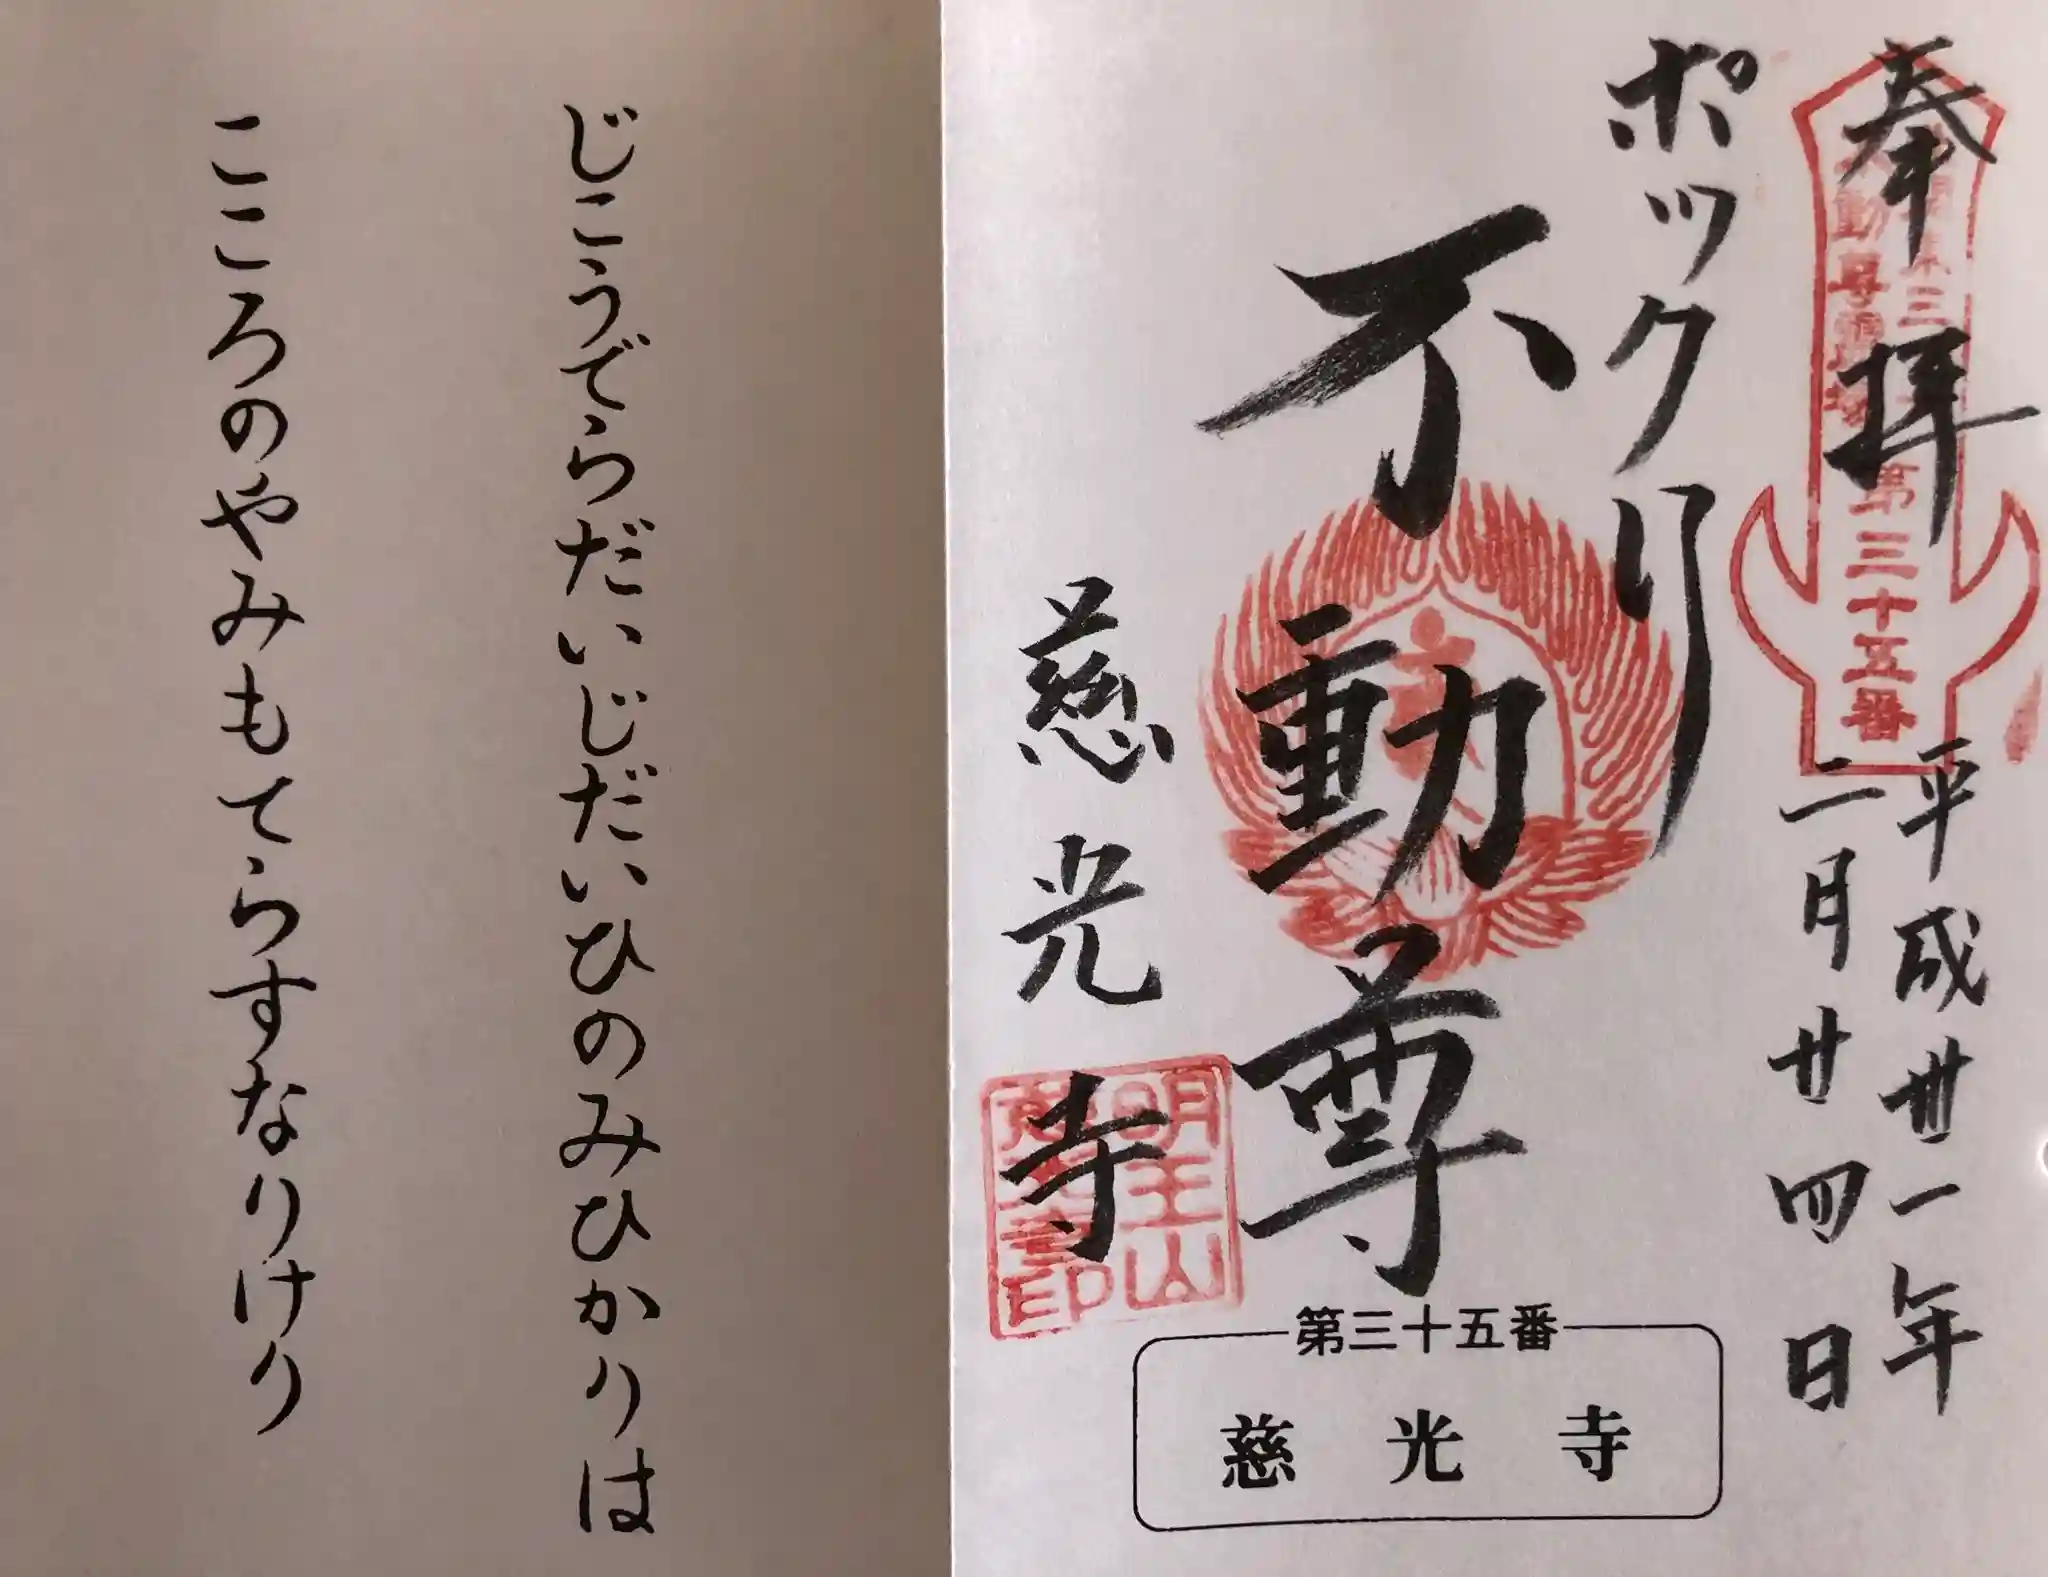 奉拝
平成卅一年
二月廿四日
ポックリ
不動尊
慈光寺
第三十五番
明王山
印
第三十五番
慈光寺
じこうでらだいじだいひのみひかりは
こころのやみもてらすなりけり